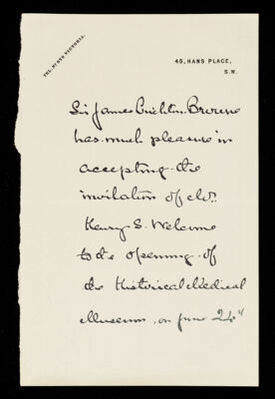 TEL. Nº 578 VICTORIA.
45, HANS PLACE,
S.W.
Sir James Crichton-Browne
has much pleasure in
accepting the
invitation of Mr.
Henry S. Wellcome
to the opening of
the Historical Medical
Museum, on June 24th